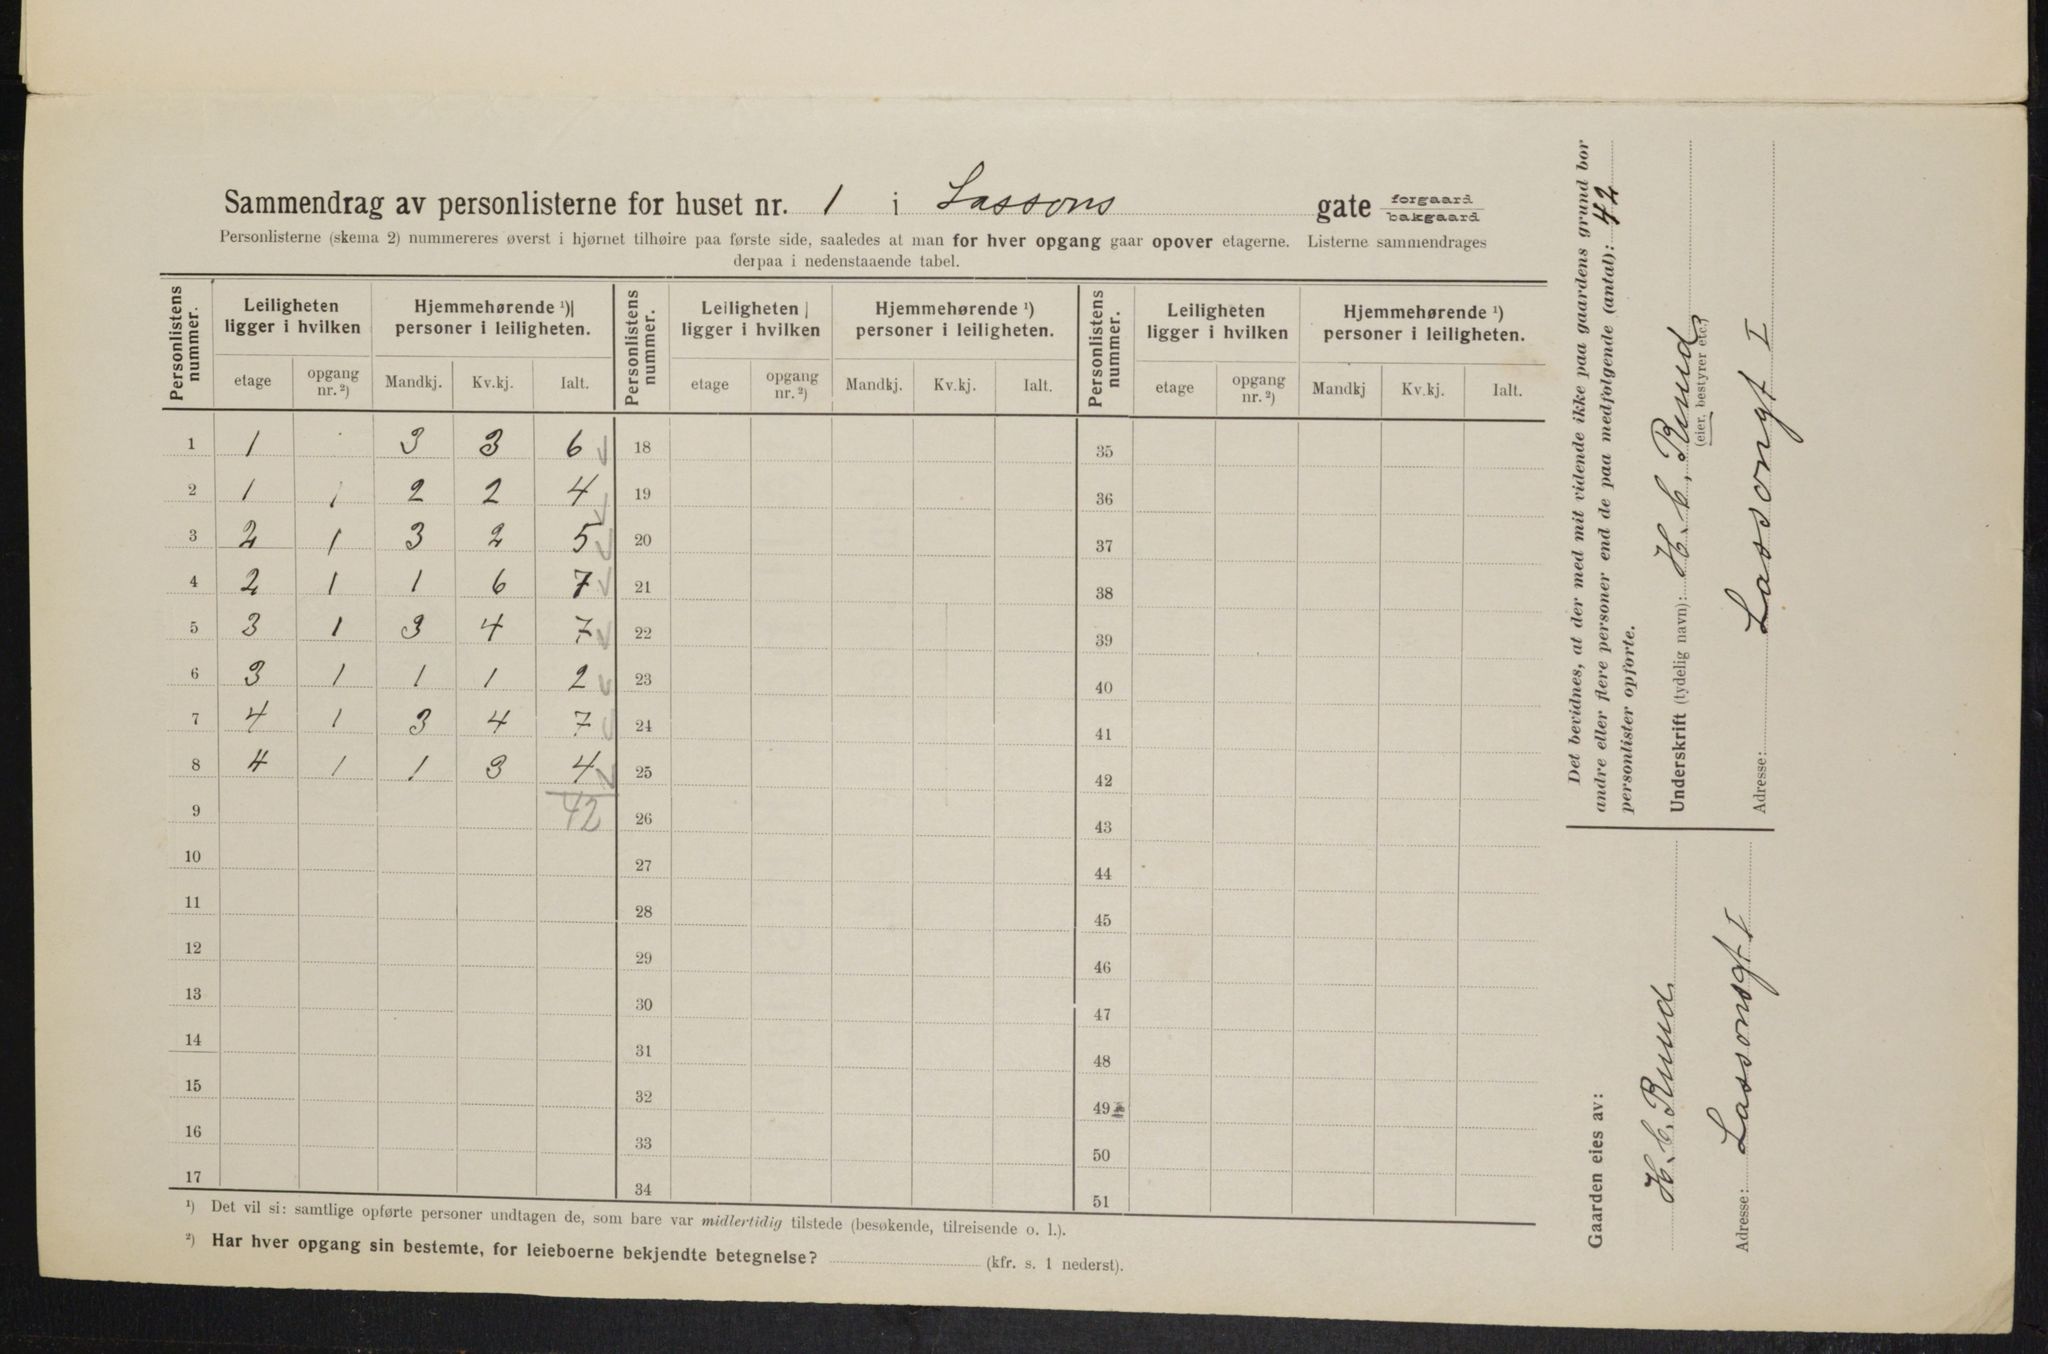 Sammendrag av personlisterne for huset nr. 1 i Lassons gate forgaard bakgaard
Personlisterne (skema 2) nummereres øverst i hjørnet tilhøire paa første side, saaledes at man for hver opgang gaar opover etagerne. Listerne sammendrages
derpaa i nedenstaaende tabel.
Personlistens nummer. Leiligheten ligger i hvilken Hjemmehørende ¹) personer i leiligheten. Personlistens nummer. Leiligheten ligger i hvilken Hjemmehørende ¹) personer i leiligheten. Personlistens nummer. Leiligheten ligger i hvilken Hjemmehørende ¹) personer i leiligheten.
etage opgang nr. ²) Mandkj. Kv.kj. Ialt. etage opgang nr. ²) Mandkj. Kv.kj. Ialt. etage opgang nr. ²) Mandkj Kv.kj. Ialt.
1 1 3 3 6 18 35
2 1 1 2 2 4 19 36
3 2 1 3 2 5 20 37
4 2 1 1 6 7 21 38
5 3 1 3 4 7 22 39
6 3 1 1 1 2 23 40
7 4 1 3 4 7 24 41
8 4 1 1 3 4 25 42
9 42 26 43
10 27 44
11 28 45
12 29 46
13 30 47
14 31 48
15 32 49
16 33 50
17 34 51
¹) Det vil si: samtlige opførte personer undtagen de, som bare var midlertidig tilstede (besøkende, tilreisende o. l.).
²) Har hver opgang sin bestemte, for leieboerne bekjendte betegnelse? (kfr. s. 1 nederst).
Det bevidnes, at der med mit vidende ikke paa gaardens grund bor
andre eller flere personer end de paa medfølgende (antal): 42
personlister opførte.
Underskrift (tydelig navn): H. C. Ruud
(eier, bestyrer etc.)
Adresse: Lassongt I
Gaarden eies av:
H. C. Ruud
Adresse: Lassonsgt I